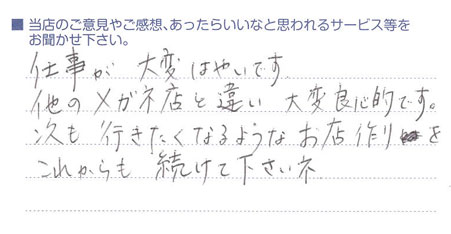 ■ 当店のご意見やご感想、あったらいいなと思われるサービス等を
お聞かせ下さい。
仕事が 大変はやいです。
他のメガネ店と違い 大変良心的です。
次も 行きたくなるようなお店作りを
これからも 続けて下さいネ